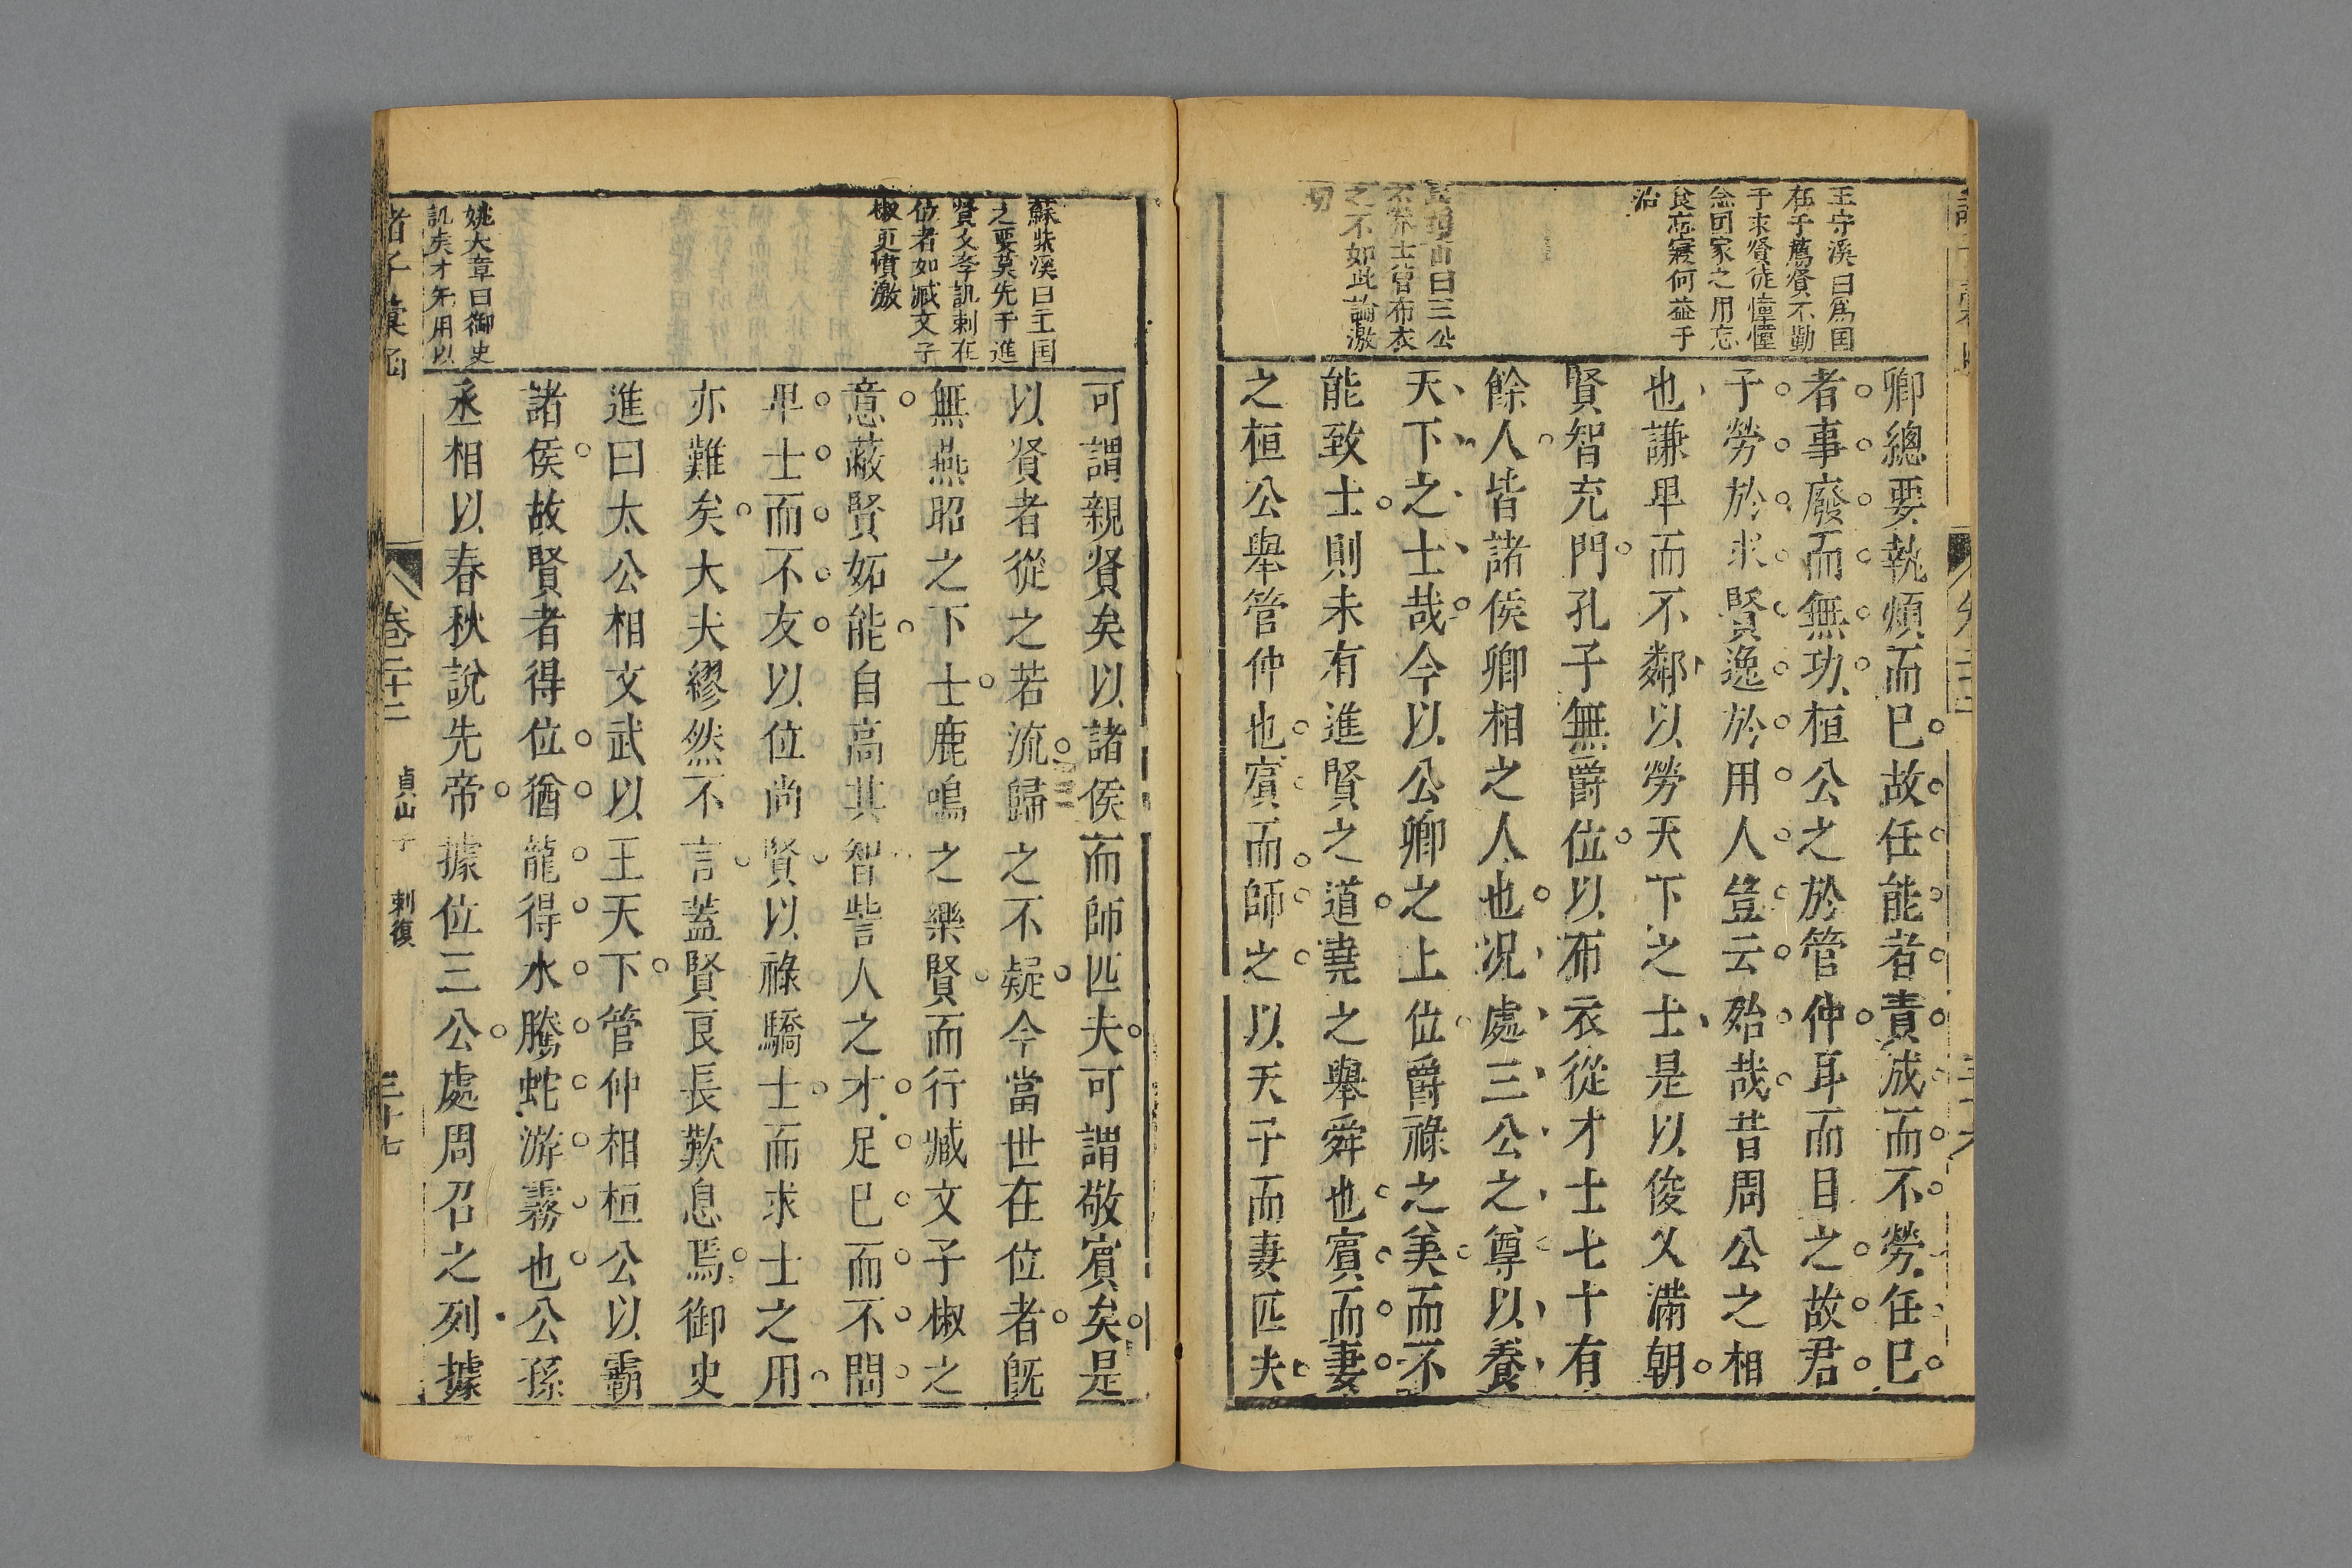 王守溪曰爲国
在于薦賢不勤
于求賢徒憧憧
念囯家之用忘
食忘寢何益于
治
卿總要執煩而巳故任能者責成而不勞任巳
者事廢而無功桓公之於管仲耳而目之故君
子勞於求賢逸於用人豈云殆哉昔周公之相
也謙卑而不鄰以勞天下之士是以俊乂滿朝
賢智充門孔子無爵位以布衣從才士七十有
餘人皆諸侯卿相之人也况處三公之尊以養
天下之士哉今以公卿之上位爵祿之美而不
能致士則未有進賢之道堯之舉舜也賔而妻
之桓公舉管仲也賔而師之以天子而妻匹夫
曰三公
不養士管布衣
之不如此論激
切
蘇紫溪曰王囯
之要莫先于進
賢文李訊刺在
位者如臧文子
椒更憤激
可謂親賢矣以諸侯而師匹夫可謂敬賔矣是
以賢者從之若流歸之不疑今當世在位者旣
無燕昭之下士鹿鳴之樂賢而行臧文子椒之
意蔽賢妬能自高其智訾人之才足巳而不問
卑士而不友以位尚賢以祿驕士而求士之用
亦難矣大夫繆然不言蓋賢良長歎息焉御史
進曰太公相文武以王天下管仲相桓公以霸
諸侯故賢者得位猶龍得水騰蛇游霧也公孫
丞相以春秋說先帝據位三公處周召之列據
姚大章曰御史
訊矣才无用以
諸子彙函
卷二十二
貞山子
刺復
三十七